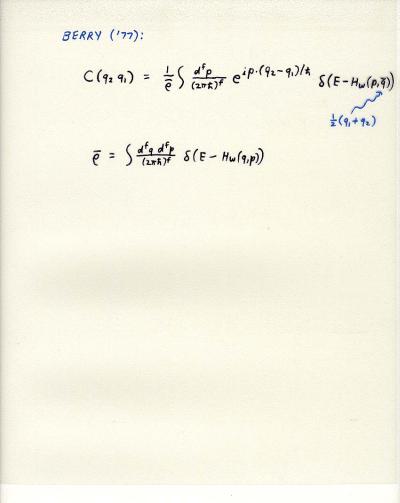 BERRY ('77):
C(q₂ q₁) = 1/ρ̄ ∫ d^f p/(2πħ)^f e^{ip·(q₂-q₁)/ħ} δ(E-H_W(p,q̄))
½(q₁+q₂)
ρ̄ = ∫ d^f q d^f p/(2πħ)^f δ(E - H_W(q,p))